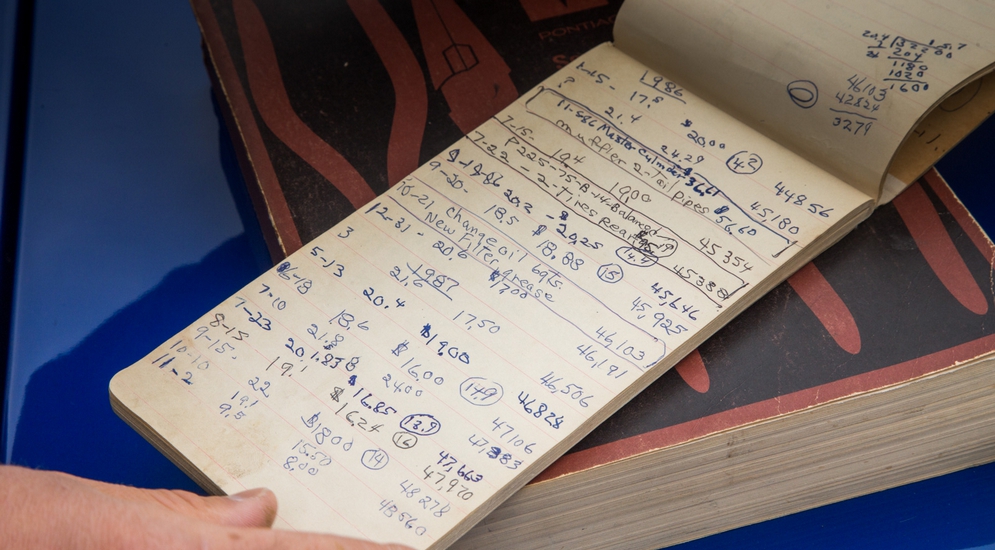 PONTIAC
S
1986
4-15- 17.8 $2000 44856
? 21.4 24.29 (14.2) 45,180
11-5-86 Master Cylinder 36.61
muffler 2-Tail Pipes $56.60
7-15- 19.4 1900 45354
P225-75-R-14-Balanced
7-22 - 2-Tires Rear 45388
8-18-86 20.2 - $20.25 (14.4) 45,646
9-20- 18.5 $18.88 (15) 45,925
10-21 change oil 6qts.
New Filter grease 46,103
12-31- 20.6 $17.00 46,191
1987
3 21.6 17.50 46,506
5-13 20.4 $19.00 46828
6-18 18.6 $16.00 (14.9) 47106
7-10 21.8 24.00 47,383
7-23 20.1 $16.85 (13.9) 47,663
8-15 19.1 $16.24 (16) 47,970
9-15- 22 $1800 (14) 48278
10-10 19.1 15.50 48560
11-2 9.5 8.00
46103
42824
3279